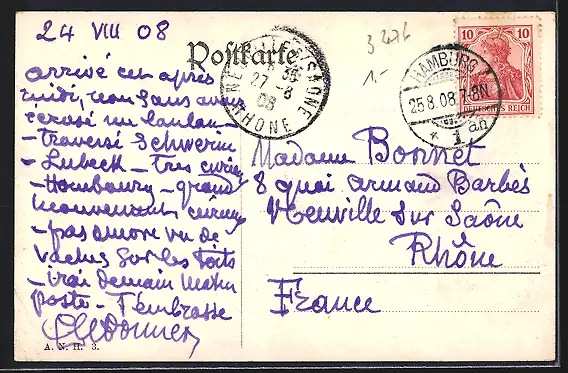 24 VIII 08
Postkarte
arrivé cet après
midi, non sans avoir
écrasé un
- traversé Schwerin
- Lubeck - très curieux
- Hambourg - grand
mouvement
- pas encore vu de
vaches sur les toits
- irai demain matin
poste - T'embrasse
A. N. H. 3.
NEUVILLE S/SAONE
27 -8
08
RHONE
3276
1.-
10 10
DEUTSCHES REICH
HAMBURG
25.8.08.7-8N
* 1 an
Madame Bonnet
8 quai Armand Barbès
Neuville sur Saône
Rhône
France